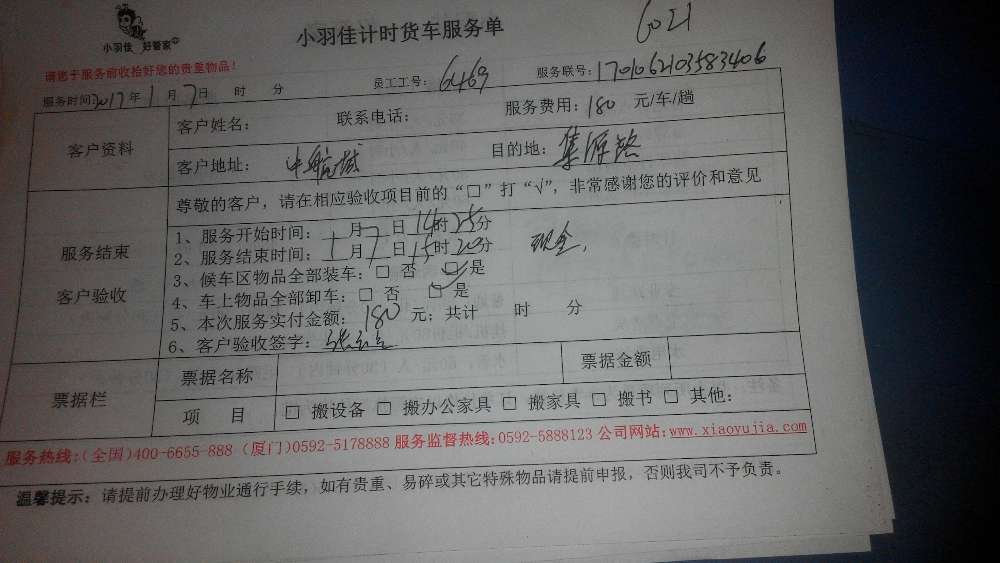 小羽佳 好管家
小羽佳计时货车服务单
6021
请您于服务前收拾好您的贵重物品！
服务时间2017年1月7日 时 分 员工工号：6469 服务联号：1701062103583406
客户资料
客户姓名： 联系电话： 服务费用：180 元/车/趟
客户地址：中航城 目的地：集源路
服务结束
客户验收
尊敬的客户，请在相应验收项目前的“□”打“√”，非常感谢您的评价和意见
1、服务开始时间：1月7日14时25分
2、服务结束时间：1月7日15时20分 现金，
3、候车区物品全部装车：□ 否 □是
4、车上物品全部卸车：□ 否 □是
5、本次服务实付金额：180元；共计 时 分
6、客户验收签字：
票据栏
票据名称 票据金额
项 目 □ 搬设备 □ 搬办公家具 □ 搬家具 □ 搬书 □ 其他：
服务热线：(全国)400-6655-888 (厦门)0592-5178888 服务监督热线：0592-5888123 公司网站：www.xiaoyujia.com
温馨提示：请提前办理好物业通行手续，如有贵重、易碎或其它特殊物品请提前申报，否则我司不予负责。